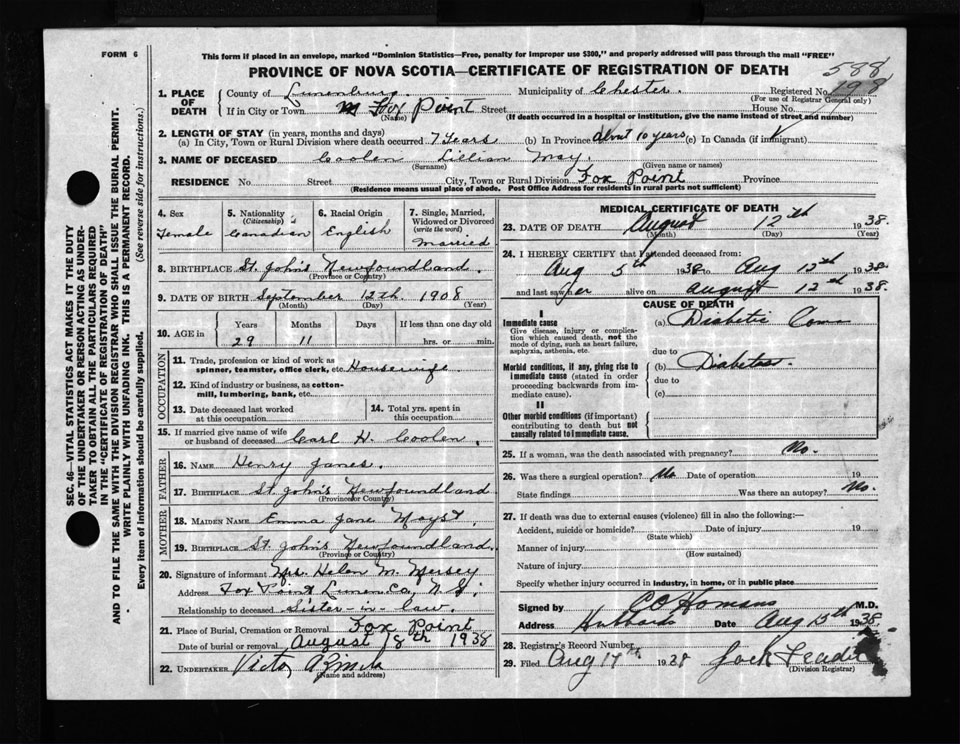 FORM 6
This form if placed in an envelope, marked "Dominion Statistics—Free, penalty for improper use $300," and properly addressed will pass through the mail "FREE"
PROVINCE OF NOVA SCOTIA—CERTIFICATE OF REGISTRATION OF DEATH
588
198
SEC. 46—VITAL STATISTICS ACT MAKES IT THE DUTY
OF THE UNDERTAKER OR PERSON ACTING AS UNDER-
TAKER TO OBTAIN ALL THE PARTICULARS REQUIRED
IN THE "CERTIFICATE OF REGISTRATION OF DEATH"
AND TO FILE THE SAME WITH THE DIVISION REGISTRAR WHO SHALL ISSUE THE BURIAL PERMIT.
WRITE PLAINLY WITH UNFADING INK. THIS IS A PERMANENT RECORD.
Every item of information should be carefully supplied. (See reverse side for instructions.)
1. PLACE OF DEATH
County of Lunenburg. Municipality of Chester. Registered No.
(For use of Registrar General only)
If in City or Town Fox Point Street House No.
(Name) (If death occurred in a hospital or institution, give the name instead of street and number)
2. LENGTH OF STAY (in years, months and days)
(a) In City, Town or Rural Division where death occurred 7 Years (b) In Province About 10 years (c) In Canada (if immigrant)
3. NAME OF DECEASED Coolen Lillian May.
(Surname) (Given name or names)
RESIDENCE No. Street City, Town or Rural Division Fox Point Province
(Residence means usual place of abode. Post Office Address for residents in rural parts not sufficient)
4. Sex Female
5. Nationality (Citizenship) Canadian
6. Racial Origin English
7. Single, Married, Widowed or Divorced (write the word) Married
8. BIRTHPLACE St. John's Newfoundland.
(Province or Country)
9. DATE OF BIRTH September 12th 1908
(Month) (Day) (Year)
10. AGE in Years 29 Months 11 Days If less than one day old hrs. or min.
OCCUPATION
11. Trade, profession or kind of work as spinner, teamster, office clerk, etc. Housewife.
12. Kind of industry or business, as cotton-mill, lumbering, bank, etc.
13. Date deceased last worked at this occupation
14. Total yrs. spent in this occupation
15. If married give name of wife or husband of deceased Carl H. Coolen.
FATHER
16. NAME Henry Janes.
17. BIRTHPLACE St. John's Newfoundland
(Province or Country)
MOTHER
18. MAIDEN NAME Emma Jane
19. BIRTHPLACE St. John's Newfoundland.
(Province or Country)
20. Signature of informant Mrs. Helen M.
Address Fox Point Lunen. Co. N.S.
Relationship to deceased Sister-in-law.
21. Place of Burial, Cremation or Removal Fox Point
Date of burial or removal August 18th 1938
22. UNDERTAKER
(Name and address)
MEDICAL CERTIFICATE OF DEATH
23. DATE OF DEATH August 12th 1938.
(Month) (Day) (Year)
24. I HEREBY CERTIFY that I attended deceased from:
Aug 5th 1938 to Aug 12th 1938
and last saw her alive on August 12th 1938.
CAUSE OF DEATH
I
Immediate cause
Give disease, injury or complication which caused death, not the mode of dying, such as heart failure, asphyxia, asthenia, etc.
(a) Diabetic Coma
due to
Morbid conditions, if any, giving rise to immediate cause (stated in order proceeding backwards from immediate cause).
(b) Diabetes.
due to
(c)
II
Other morbid conditions (if important) contributing to death but not causally related to immediate cause.
25. If a woman, was the death associated with pregnancy? No.
26. Was there a surgical operation? No Date of operation 19
State findings Was there an autopsy? No.
27. If death was due to external causes (violence) fill in also the following:—
Accident, suicide or homicide? Date of injury 19
(State which)
Manner of injury
(How sustained)
Nature of injury
Specify whether injury occurred in industry, in home, or in public place
Signed by M.D.
Address Hubbards Date Aug 13th 1938.
28. Registrar's Record Number
29. Filed Aug 17th 1938
(Division Registrar)